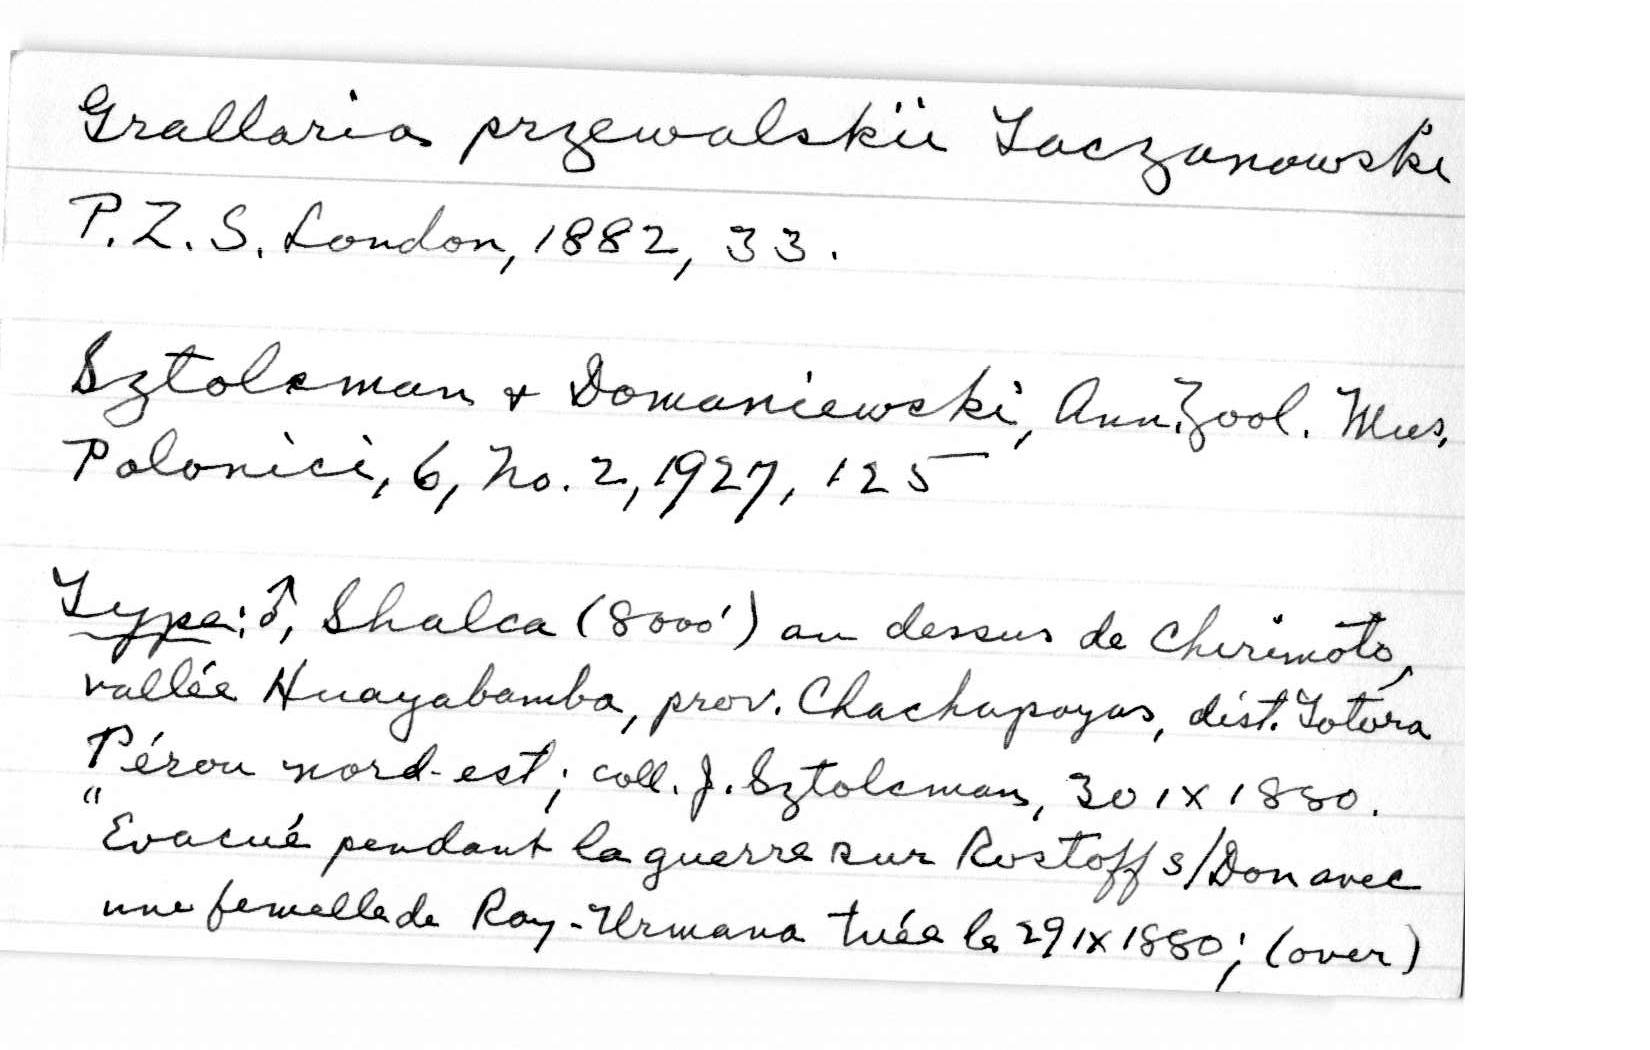 Grallaria przewalskii Taczanowski
P. Z. S. London, 1882, 33.
Sztolcman + Domaniewski, Ann. Zool. Mus.
Polonici, 6, No. 2, 1927, 125
Type: ♂, Shalca (8000') au dessus de Chirimoto,
vallée Huayabamba, prov. Chachapoyas, dist. Totora
Pérou nord-est; coll. J. Sztolcman, 30 IX 1880.
"Evacué pendant la guerre sur Rostoff s/Don avec
une femelle de Ray-Urmana tuée le 29 IX 1880; (over)